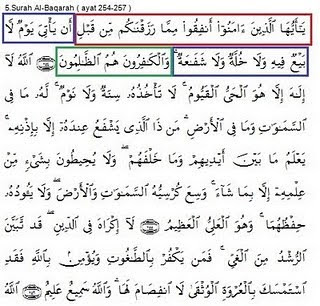 5.Surah Al-Baqarah ( ayat 254-257 )
يَـٰٓأَيُّهَا ٱلَّذِينَ ءَامَنُوٓا۟ أَنفِقُوا۟ مِمَّا رَزَقْنَـٰكُم مِّن قَبْلِ أَن يَأْتِىَ يَوْمٌ لَّا
بَيْعٌ فِيهِ وَلَا خُلَّةٌ وَلَا شَفَـٰعَةٌ ۗ وَٱلْكَـٰفِرُونَ هُمُ ٱلظَّـٰلِمُونَ ۝ ٱللَّهُ لَآ
إِلَـٰهَ إِلَّا هُوَ ٱلْحَىُّ ٱلْقَيُّومُ ۚ لَا تَأْخُذُهُۥ سِنَةٌ وَلَا نَوْمٌ ۚ لَّهُۥ مَا فِى
ٱلسَّمَـٰوَٰتِ وَمَا فِى ٱلْأَرْضِ ۗ مَن ذَا ٱلَّذِى يَشْفَعُ عِندَهُۥٓ إِلَّا بِإِذْنِهِۦ ۚ
يَعْلَمُ مَا بَيْنَ أَيْدِيهِمْ وَمَا خَلْفَهُمْ ۖ وَلَا يُحِيطُونَ بِشَىْءٍ مِّنْ
عِلْمِهِۦٓ إِلَّا بِمَا شَآءَ ۚ وَسِعَ كُرْسِيُّهُ ٱلسَّمَـٰوَٰتِ وَٱلْأَرْضَ ۖ وَلَا يَـُٔودُهُۥ
حِفْظُهُمَا ۚ وَهُوَ ٱلْعَلِىُّ ٱلْعَظِيمُ ۝ لَآ إِكْرَاهَ فِى ٱلدِّينِ ۖ قَد تَّبَيَّنَ
ٱلرُّشْدُ مِنَ ٱلْغَىِّ ۚ فَمَن يَكْفُرْ بِٱلطَّـٰغُوتِ وَيُؤْمِنۢ بِٱللَّهِ فَقَدِ
ٱسْتَمْسَكَ بِٱلْعُرْوَةِ ٱلْوُثْقَىٰ لَا ٱنفِصَامَ لَهَا ۗ وَٱللَّهُ سَمِيعٌ عَلِيمٌ ۝ ٱللَّهُ